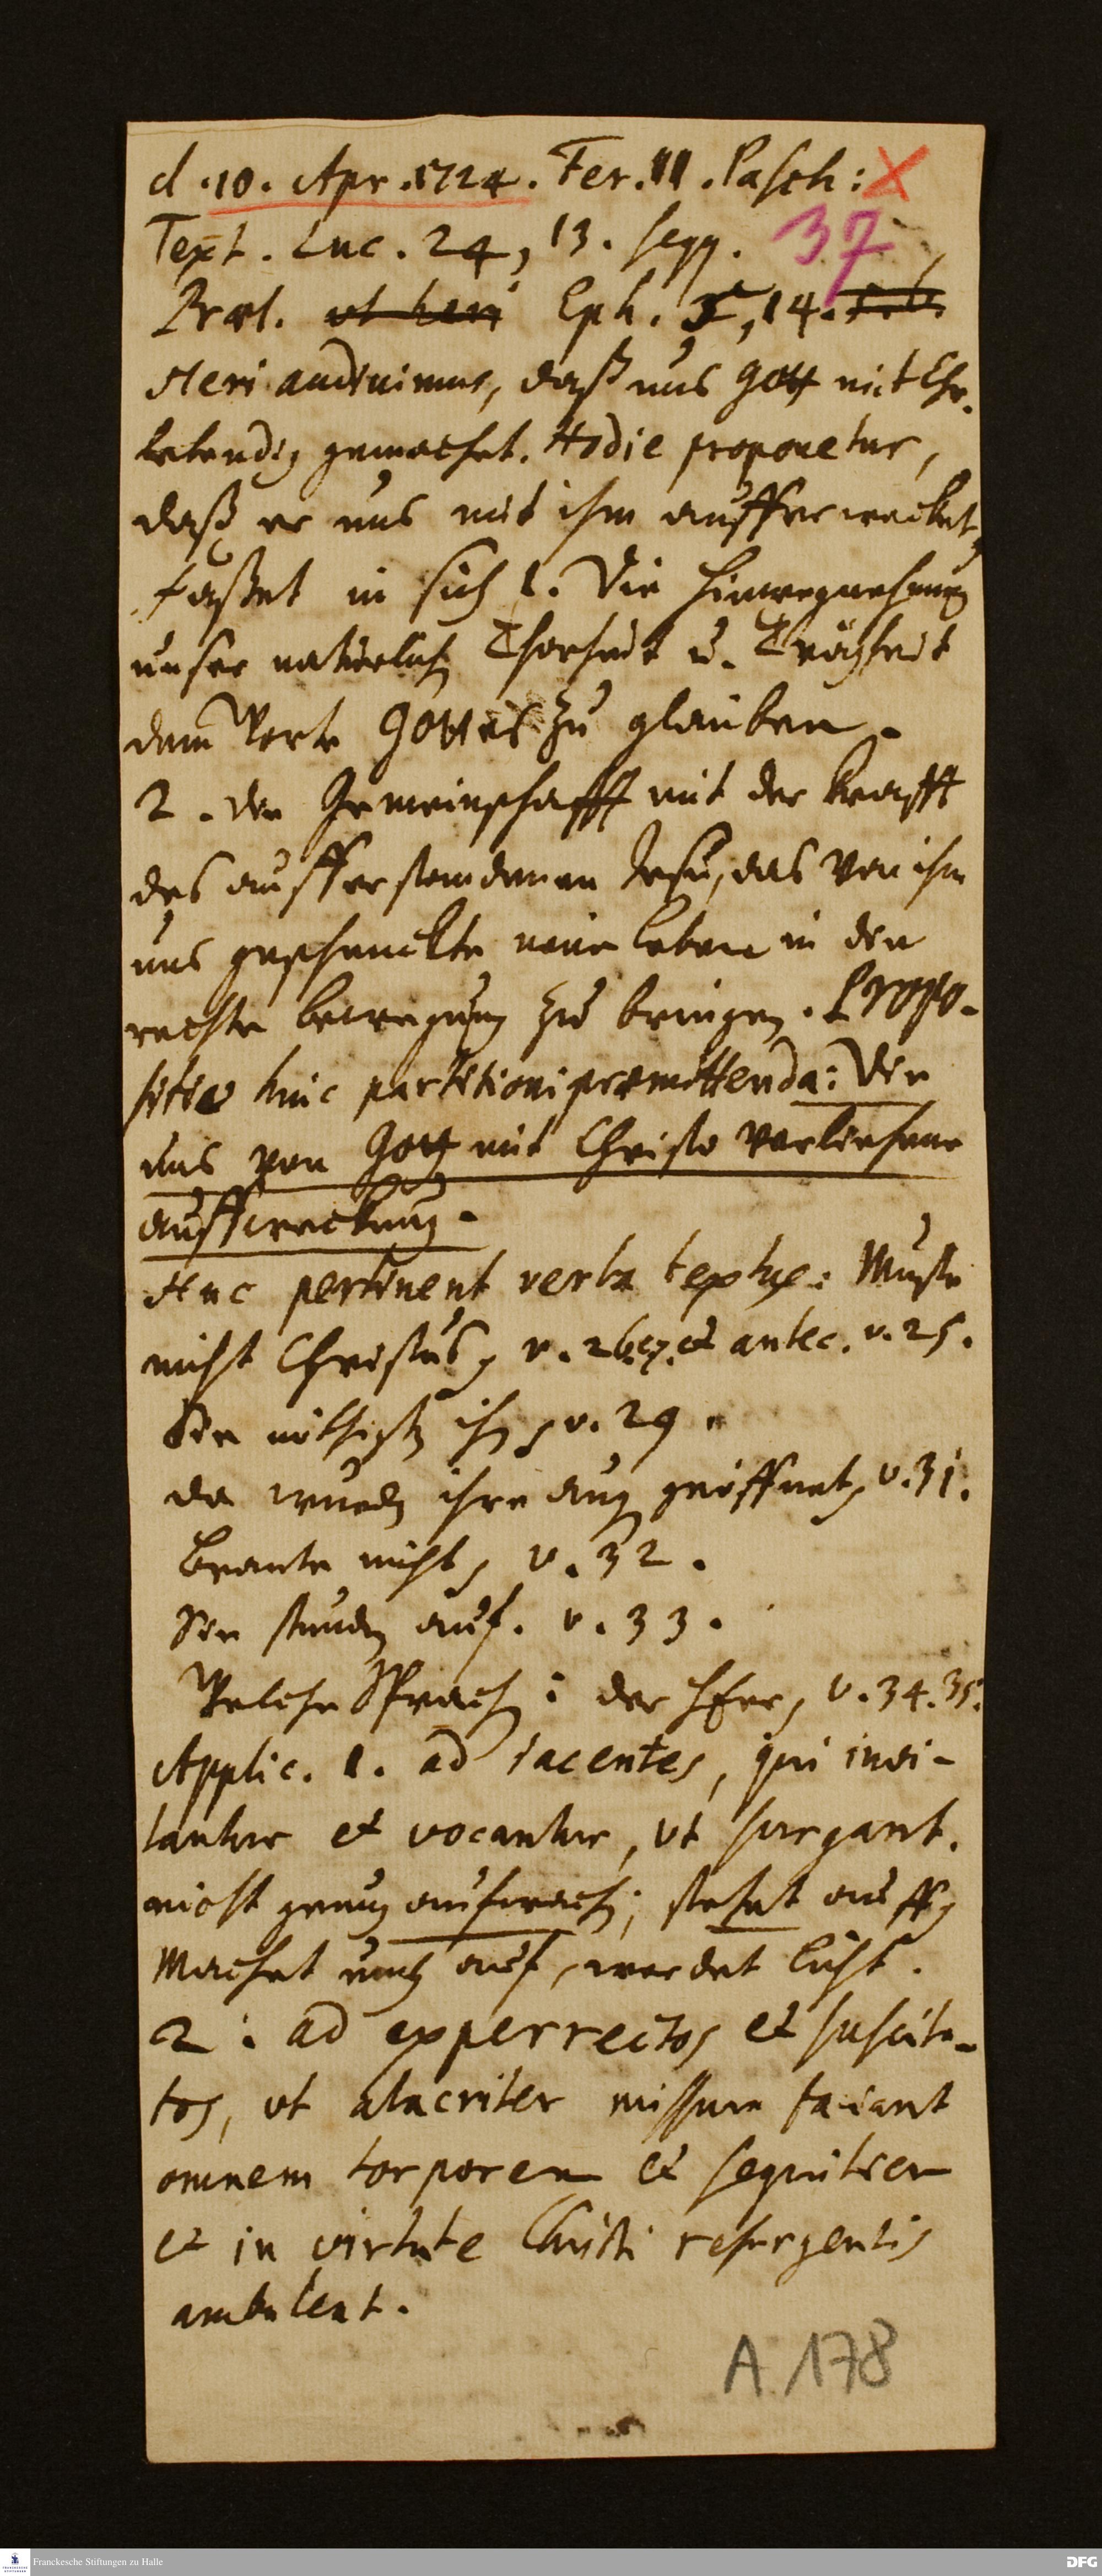 d. 10. Apr. 1724. Fer. III. Pasch: X
Text. Luc. 24, 13. seqq. 37
Præl. ut heri Eph. 5, 14.
Heri audivimus, daß uns Gott mit Chr.
lebendig gemachet. Hodie proponetur,
daß er uns mit ihm aufferwecket,
faßet in sich 1. Die Hinwegnehmung
unser natürlich Thorheit u. Trägheit
dem Worte Gottes zu glauben.
2. die Gemeinschafft mit der Krafft
des aufferstandenen Jesu, das von ihm
uns geschenckte neue Leben in die
rechte bewegung zu bringen. Propo-
sitio huic partitioni præmittenda: Die
uns von Gott mit Christo verliehene
aufferweckung.
Huc pertinent verba textus: Muste
nicht Christus, v. 26. 27. et antec. v. 25.
Sie nöthigtē ihn, v. 29.
da wurdē ihre augē geöffnet, v. 31.
Brante nicht, v. 32.
Sie stundē auf. v. 33.
Welche Sprachē: der HErr, v. 34. 35.
Applic. 1. ad iacentes, qui invi-
tantur et vocantur, ut surgant.
nicht genug aufwachē; stehet auff,
Machet euch auf, werdet licht.
2. ad experrectos et suscita-
tos, ut alacriter missum faciant
omnem torporem et segnitiem
et in virtute Christi resurgentis
ambulent.
A. 178
Franckesche Stiftungen zu Halle
DFG